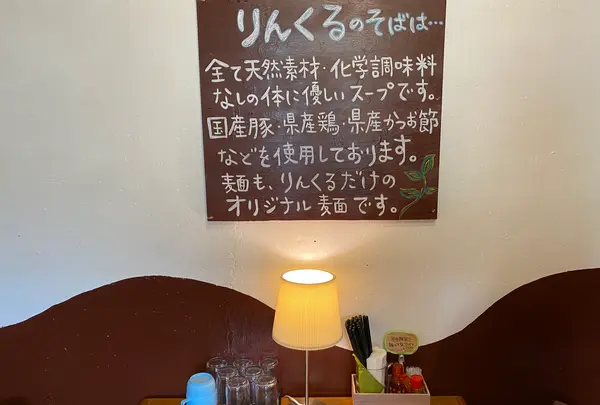 りんくるのそばは…
全て天然素材・化学調味料
なしの体に優しいスープです。
国産豚・県産鶏・県産かつお節
などを使用しております。
麺も、りんくるだけの
オリジナル麺です。